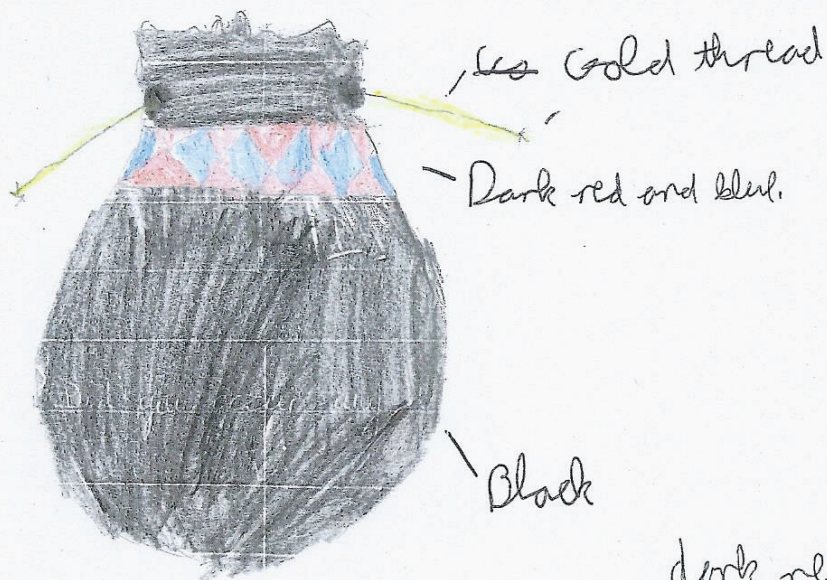 Gold thread
Dark red and blue.
Black
dark